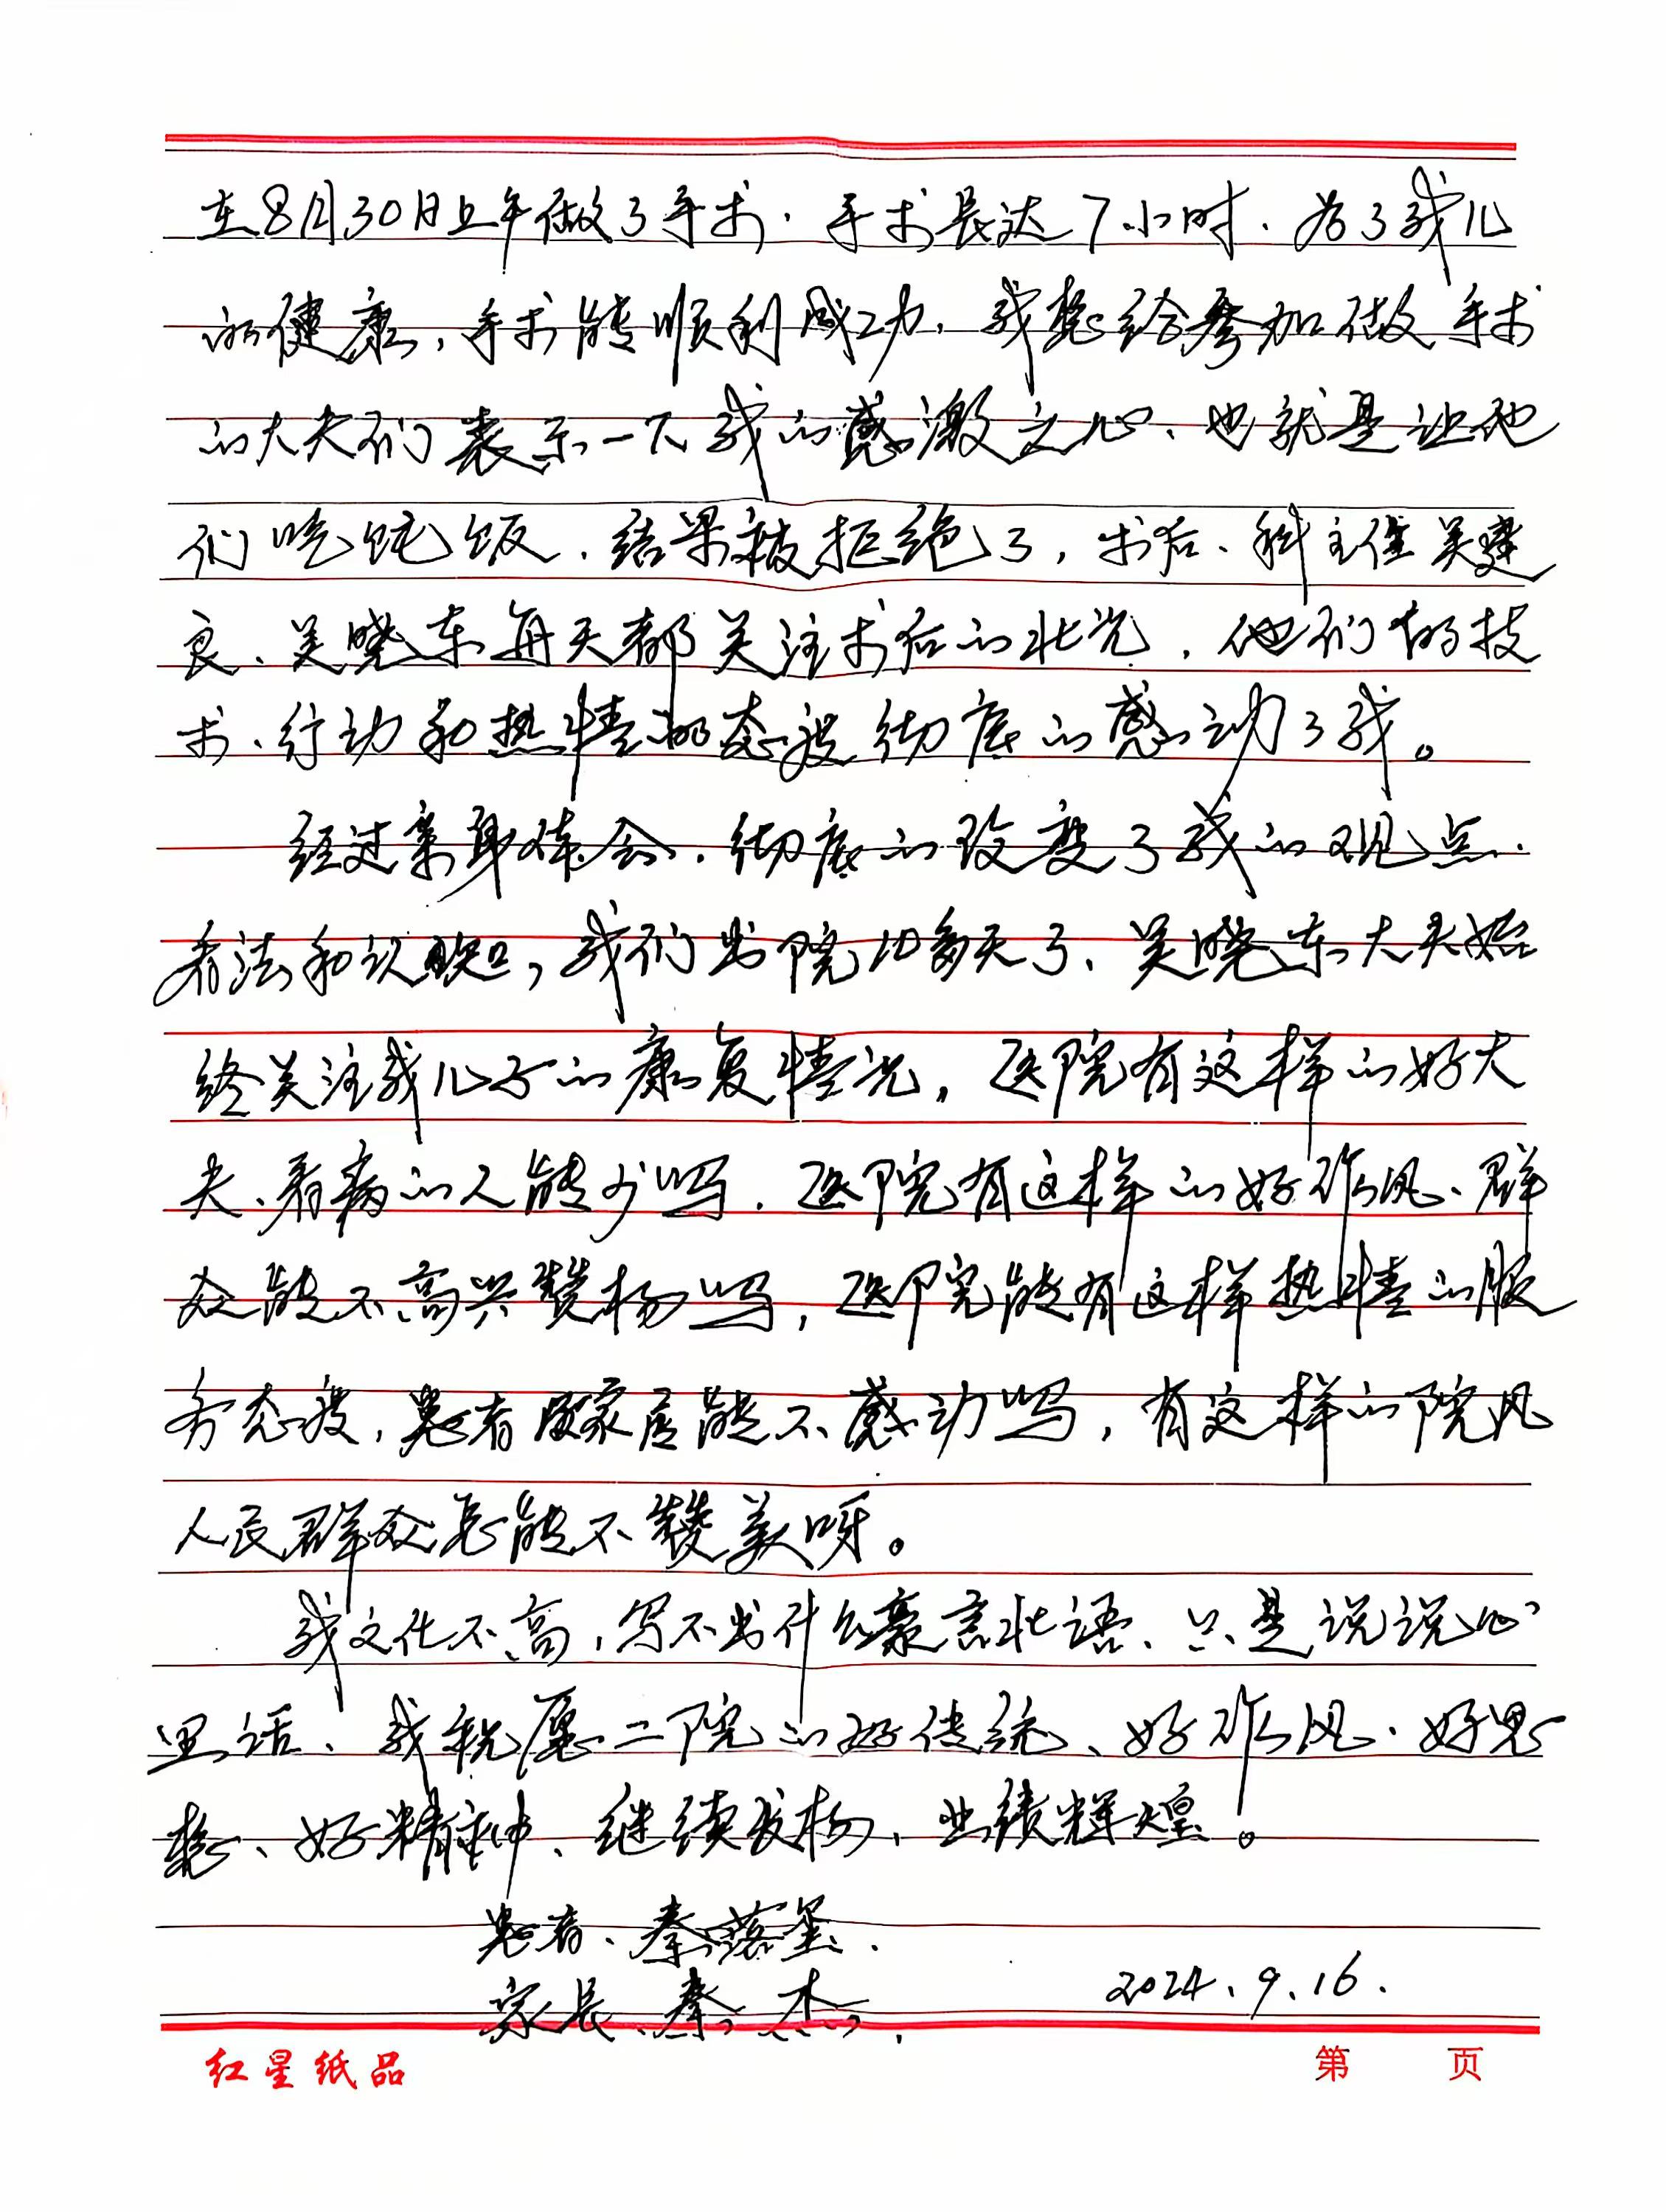 在8月30日上午做了手术．手术长达7小时、为了我儿
的健康，手术能顺利成功，我想给参加做手术
的大夫们表示一下我的感激之心、也就是让他
们吃饨饭．结果被拒绝了，术后、科主任吴建
良、吴晓东每天都关注术后的壮况，他们的技
术、行动和热情的态度彻底的感动了我。
经过亲身体会．彻底的改变了我的观点．
看法和认知，我们出院10多天了、吴晓东大夫始
终关注我儿子的康复情况，医院有这样的好大
夫、看病的人能少吗．医院有这样的好作风、群
众能不高兴赞杨吗，医院能有这样热情的服
务态度，患者家属能不感动吗，有这样的院风
人民群众怎能不赞美呀。
我文化不高，写不出什么豪言壮语、只是说说心
里话、我祝愿二院的好传统、好作风．好思
想、好精神、继续发杨、业绩辉煌。
患者、秦落垒．
家长、秦杰．
2024.9.16.
红星纸品
第 页